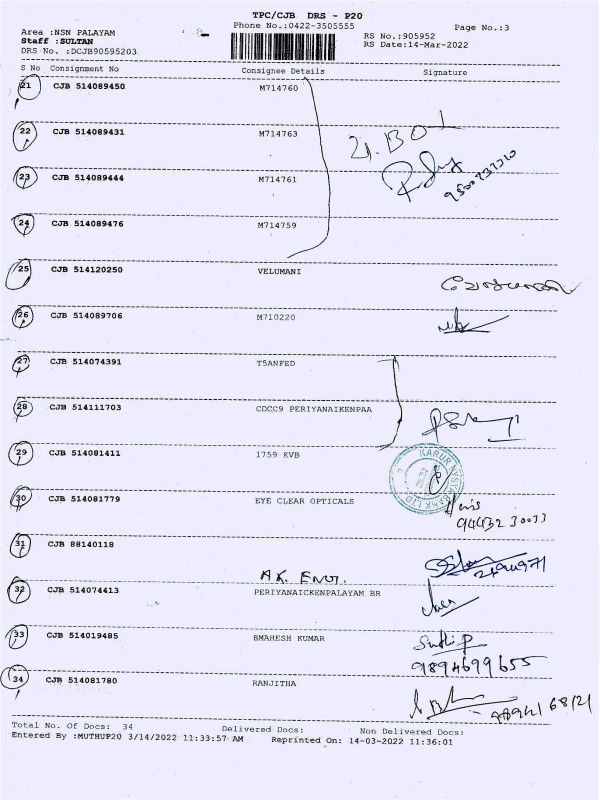 TPC/CJB DRS - P20
Phone No.:0422-3505555
Page No.:3
Area :NSN PALAYAM
Staff :SULTAN
DRS No. :DCJB90595203
RS No.:905952
RS Date:14-Mar-2022
S No Consignment No Consignee Details Signature
21 CJB 514089450 M714760
22 CJB 514089431 M714763
21. BOI
23 CJB 514089444 M714761
24 CJB 514089476 M714759
25 CJB 514120250 VELUMANI
26 CJB 514089706 M710220
27 CJB 514074391 T5ANFED
28 CJB 514111703 CDCC9 PERIYANAIKENPAA
29 CJB 514081411 1759 KVB
30 CJB 514081779 EYE CLEAR OPTICALS
94432 30033
31 CJB 88140118
AK. ENGT.
32 CJB 514074413 PERIYANAICKENPALAYAM BR
33 CJB 514019485 BMAHESH KUMAR
9894699655
34 CJB 514081780 RANJITHA
Total No. Of Docs: 34 Delivered Docs: Non Delivered Docs:
Entered By :MUTHUP20 3/14/2022 11:33:57 AM Reprinted On: 14-03-2022 11:36:01